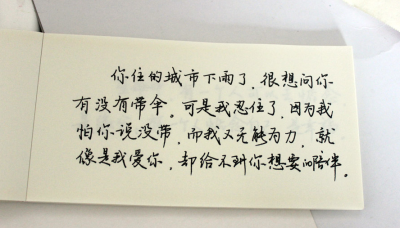 你住的城市下雨了，很想问你
有没有带伞。可是我忍住了，因为我
怕你说没带，而我又无能为力，就
像是我爱你，却给不到你想要的陪伴。